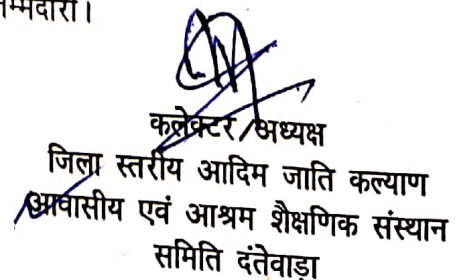 कलेक्टर/अध्यक्ष
जिला स्तरीय आदिम जाति कल्याण
आवासीय एवं आश्रम शैक्षणिक संस्थान
समिति दंतेवाड़ा